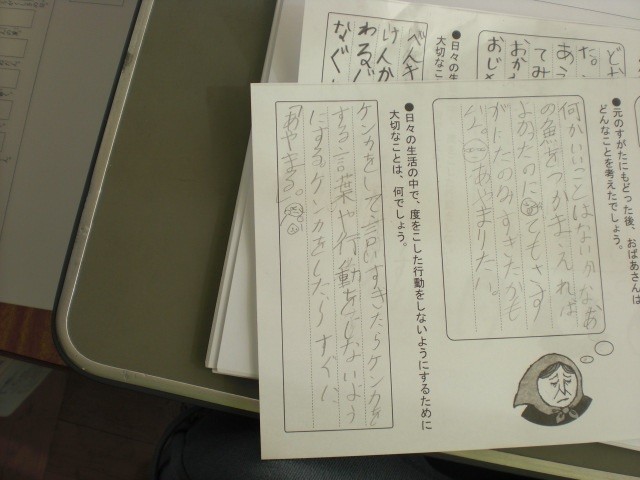 ●元のすがたにもどった後、おばあさんは
どんなことを考えたでしょう。
何かいいことはないかなあ
の魚をつかまえれば
よかったのに でもさす
がにたのみすぎたかも
な。あやまりたい。
●日々の生活の中で、度をこした行動をしないようにするために
大切なことは、何でしょう。
ケンカをして言いすぎたらケンカを
する言葉や行動をしないよう
にするケンカをしたらすぐに
あやまる。
だ。
てみ
おか
おじ
●日々の生
大切なこ
べんき
けんか
わる
なぐ